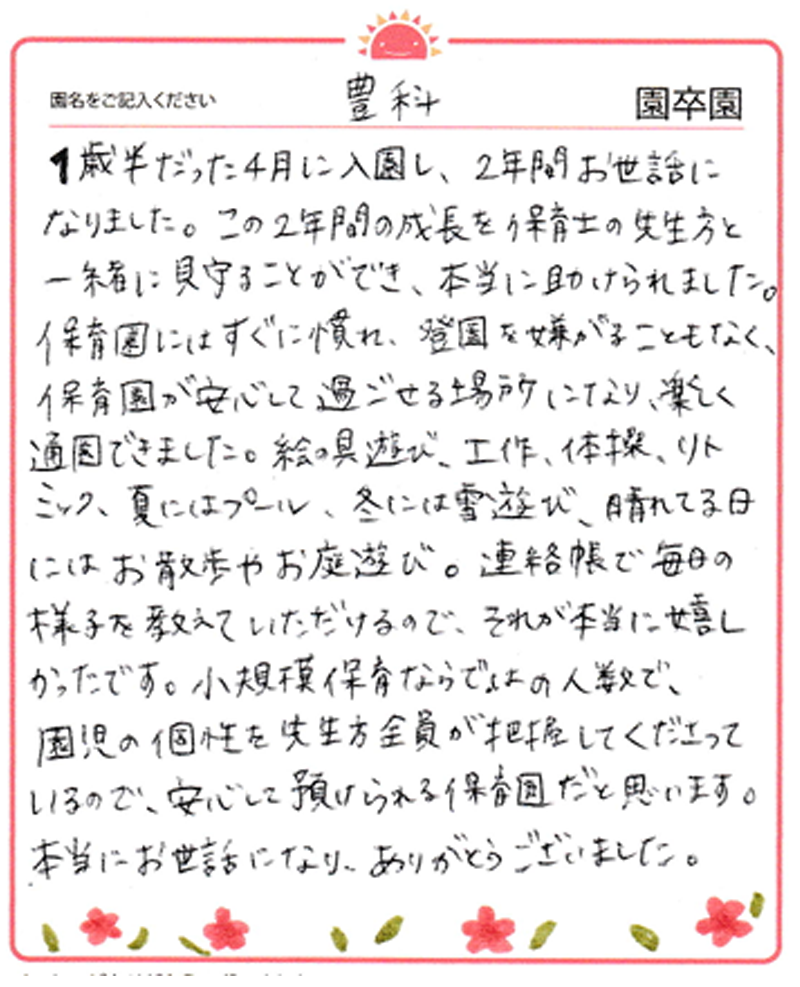 園名をご記入ください 豊科 園卒園
1歳半だった4月に入園し、2年間お世話に
なりました。この2年間の成長を保育士の先生方と
一緒に見守ることができ、本当に助けられました。
保育園にはすぐに慣れ、登園を嫌がることもなく、
保育園が安心して過ごせる場所になり、楽しく
通園できました。絵の具遊び、工作、体操、リト
ミック、夏にはプール、冬には雪遊び、晴れてる日
にはお散歩やお庭遊び。連絡帳で毎日の
様子を教えていただけるので、それが本当に嬉し
かったです。小規模保育ならではの人数で、
園児の個性を先生方全員が把握してくださって
いるので、安心して預けられる保育園だと思います。
本当にお世話になり、ありがとうございました。